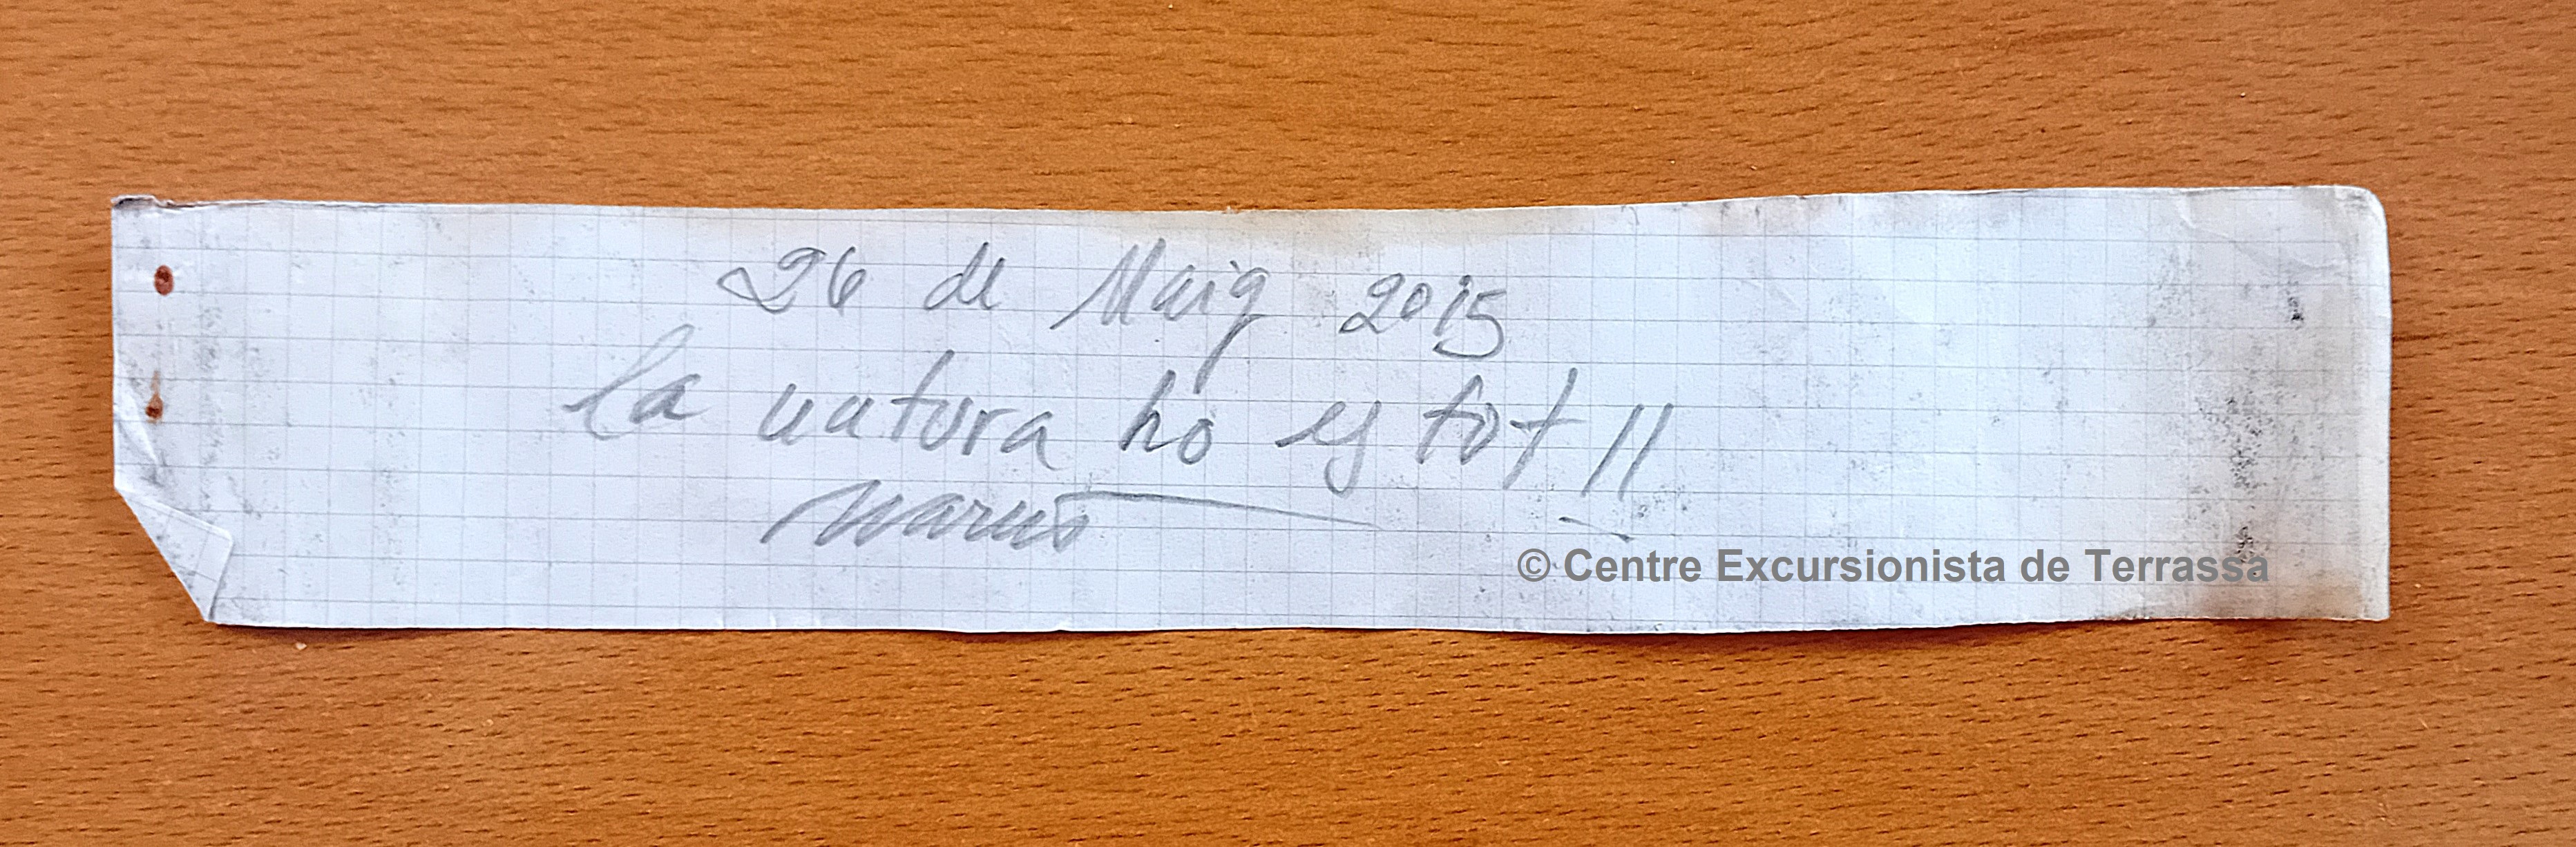 26 de Maig 2015
la natura ho es tot !!
© Centre Excursionista de Terrassa